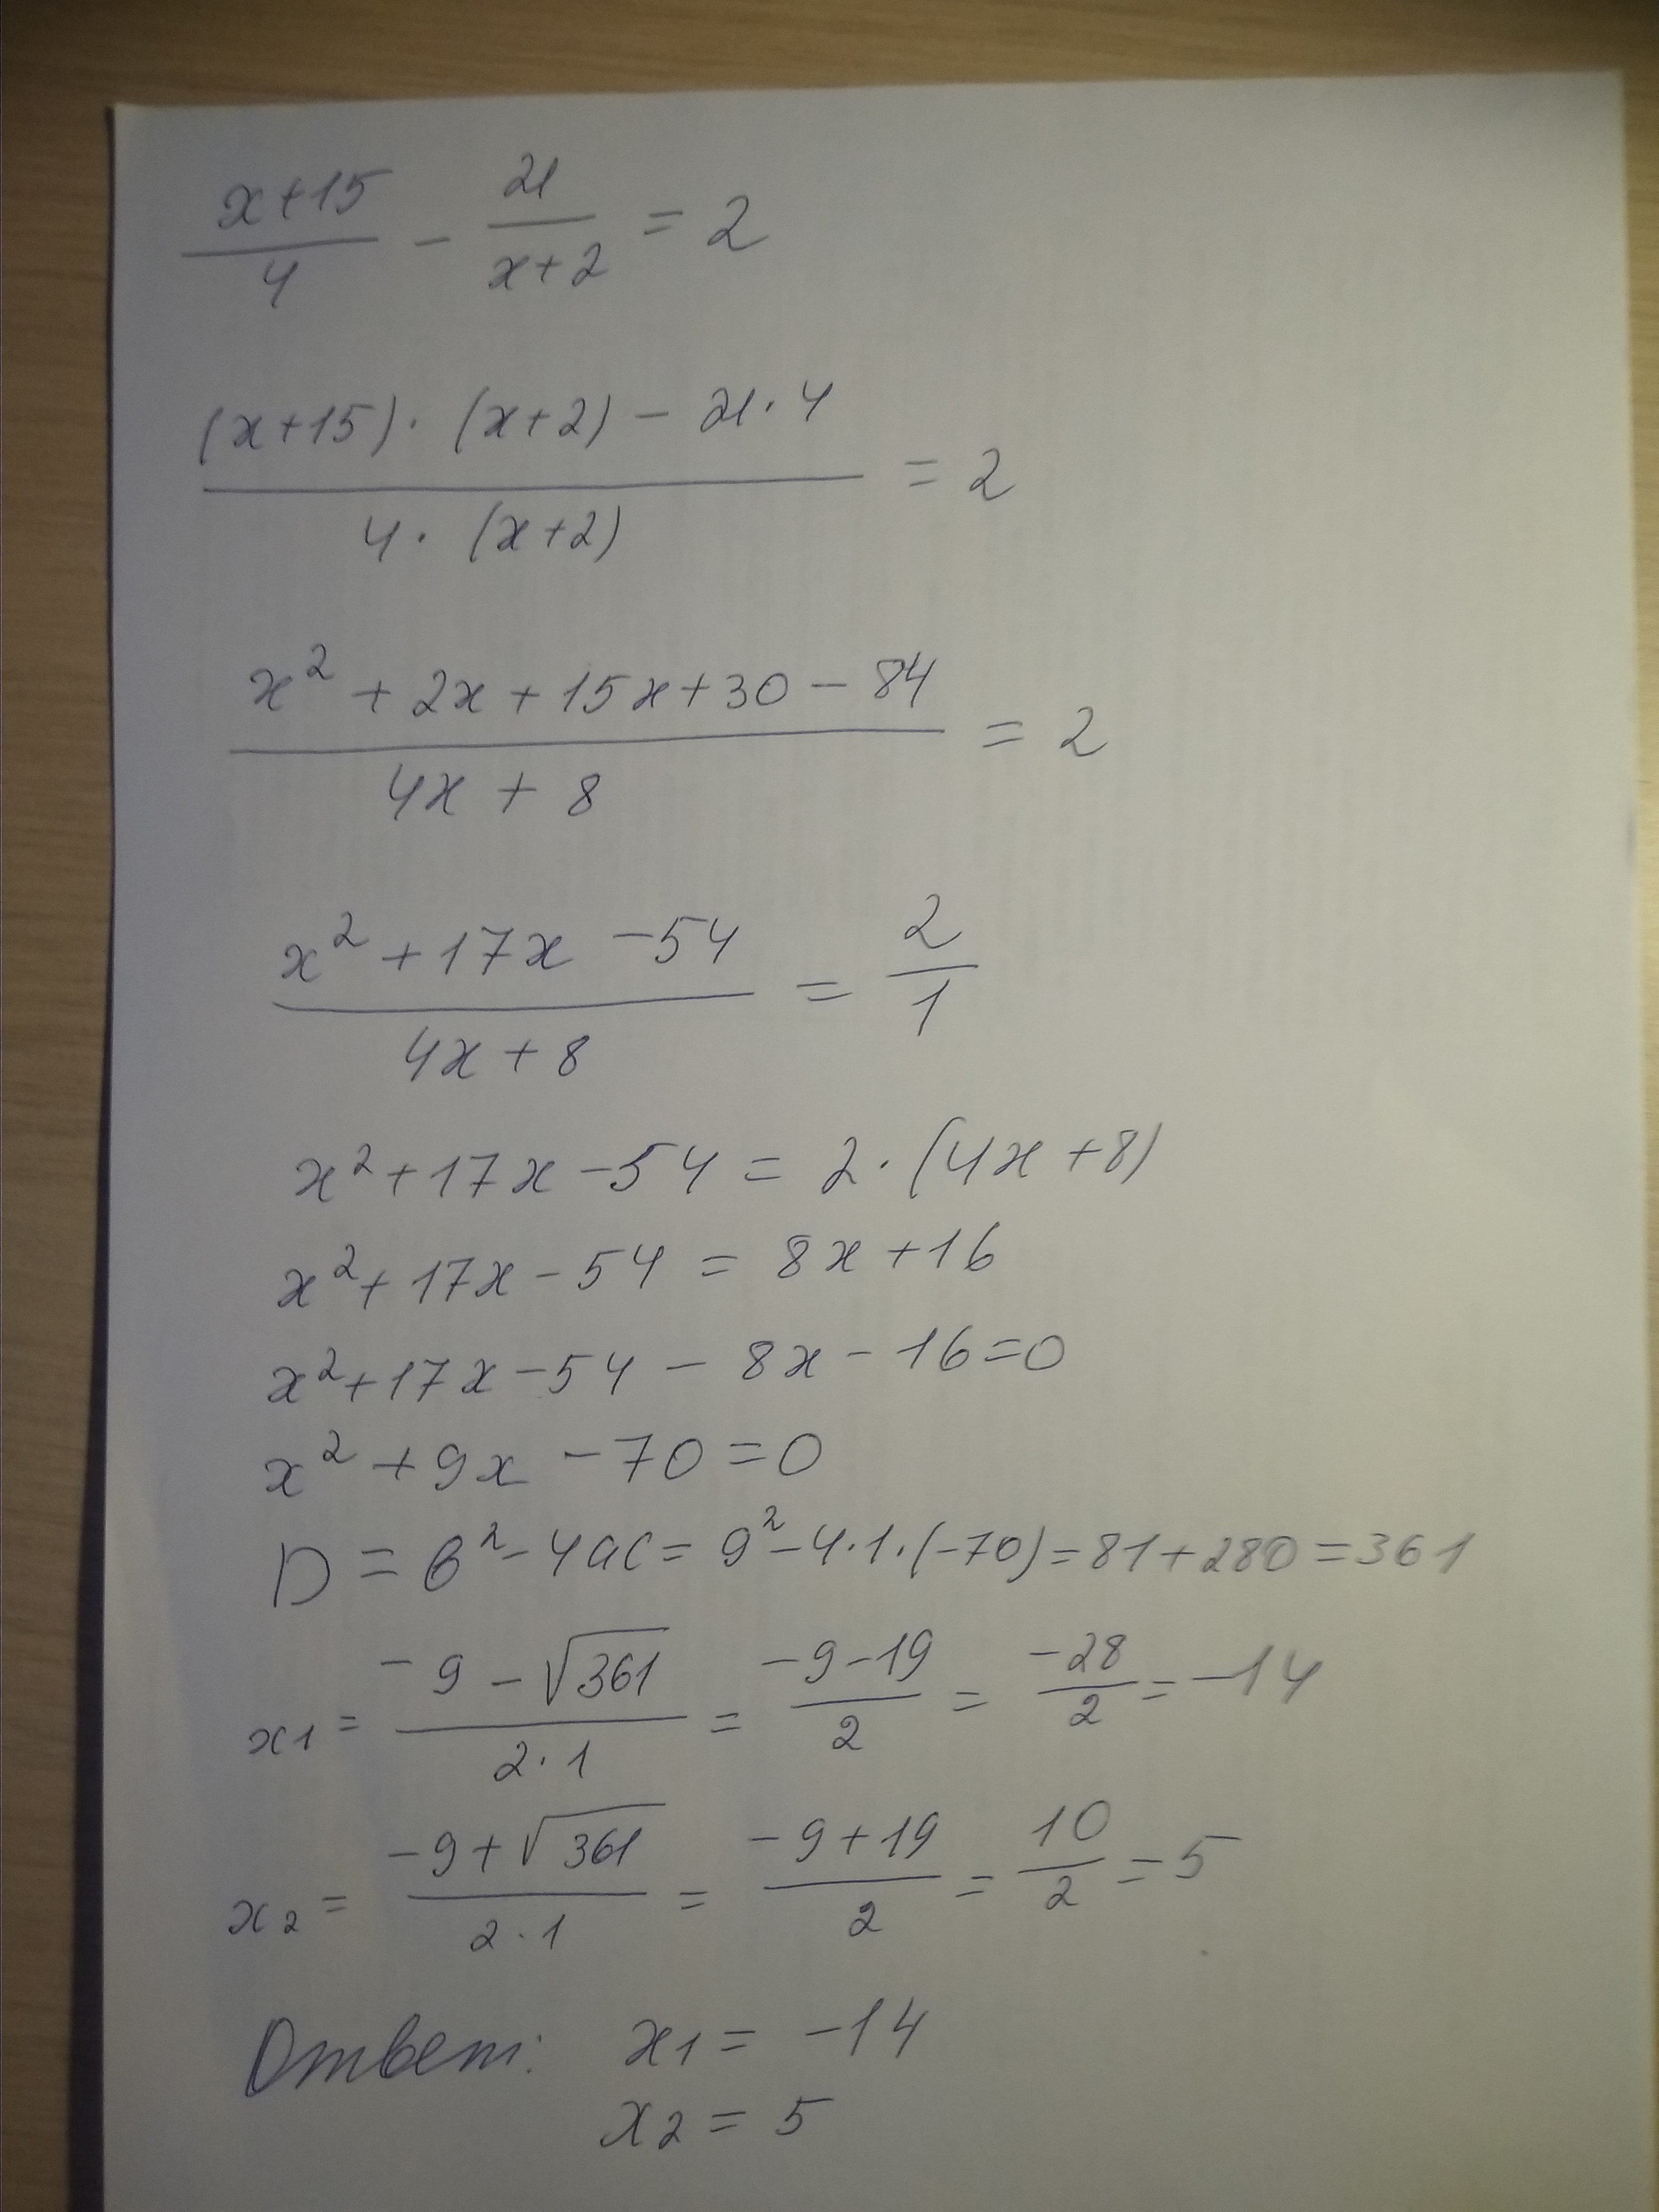 (x+15)/4 − 21/(x+2) = 2
((x+15)·(x+2) − 21·4)/(4·(x+2)) = 2
(x² + 2x + 15x + 30 − 84)/(4x + 8) = 2
(x² + 17x − 54)/(4x + 8) = 2/1
x² + 17x − 54 = 2·(4x + 8)
x² + 17x − 54 = 8x + 16
x² + 17x − 54 − 8x − 16 = 0
x² + 9x − 70 = 0
D = в² − 4ac = 9² − 4·1·(−70) = 81 + 280 = 361
x1 = (−9 − √361)/(2·1) = (−9 − 19)/2 = −28/2 = −14
x2 = (−9 + √361)/(2·1) = (−9 + 19)/2 = 10/2 = 5
Ответ: x1 = −14
x2 = 5